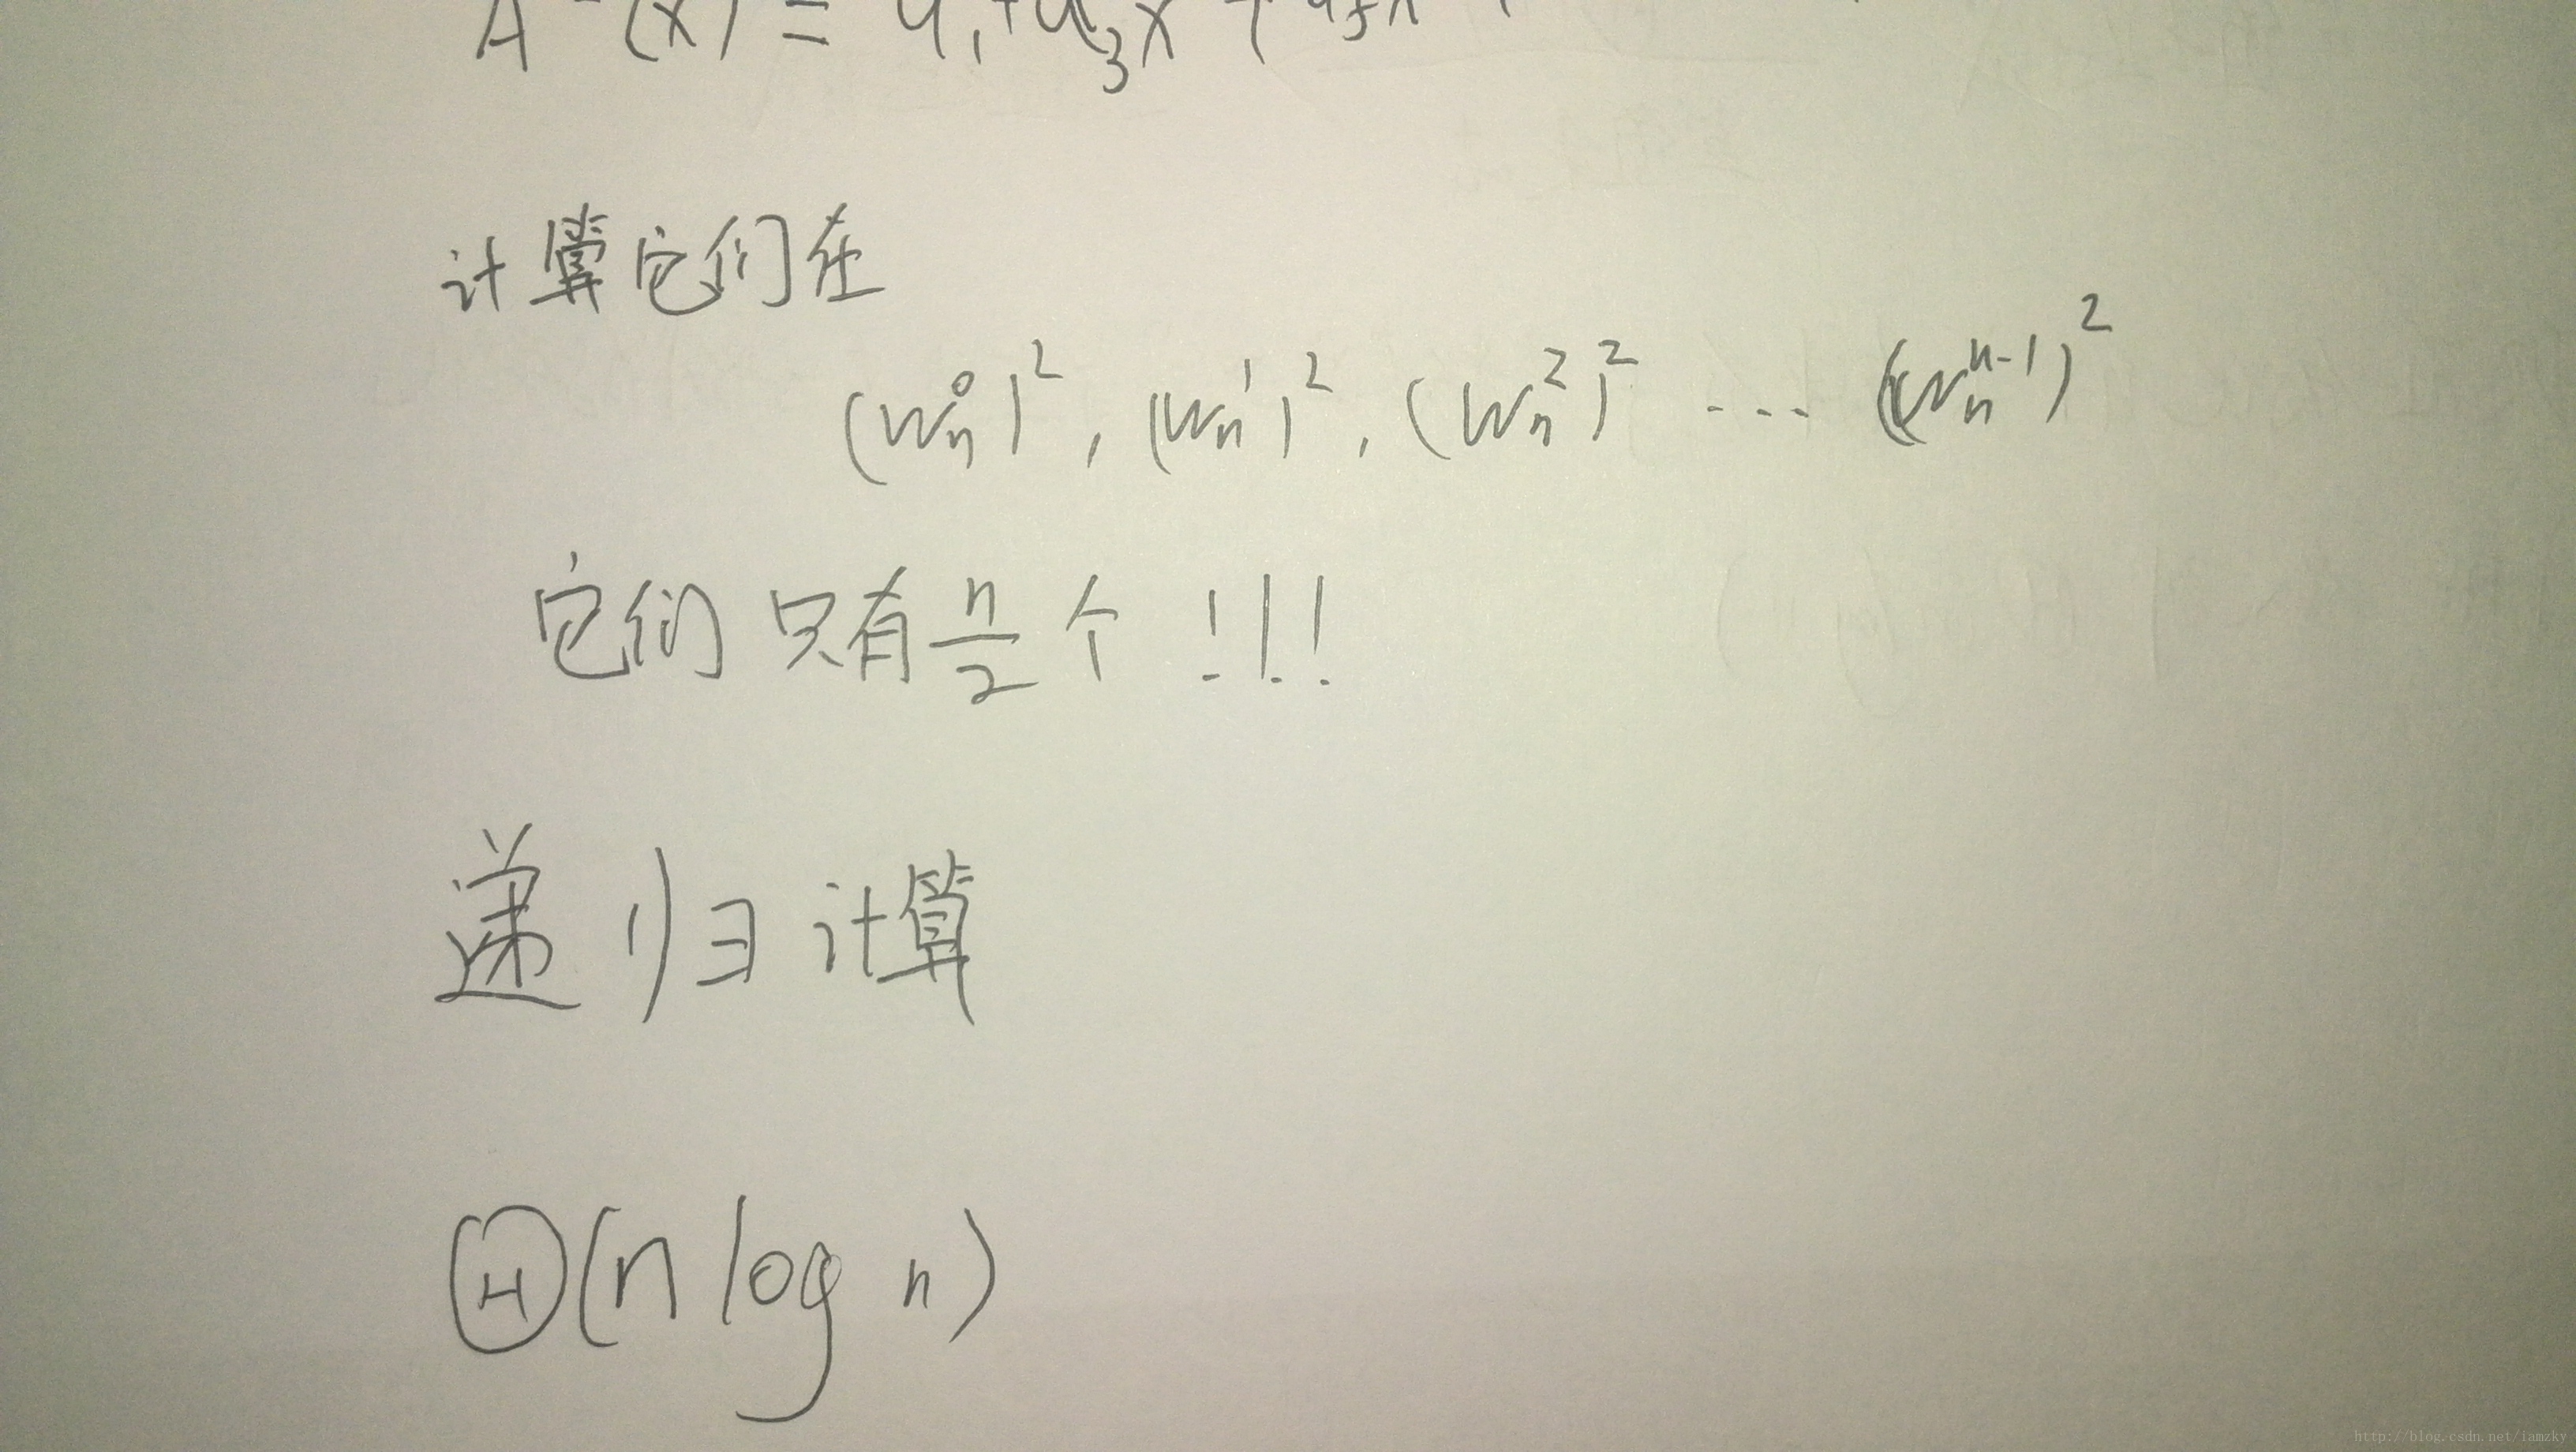 (x) = a₁+a₃x +
计算它们在
(wₙ⁰)², (wₙ¹)², (wₙ²)² ... (wₙⁿ⁻¹)²
它们只有n/2个!!!
递归计算
Θ(n log n)
http://blog.csdn.net/iamzky